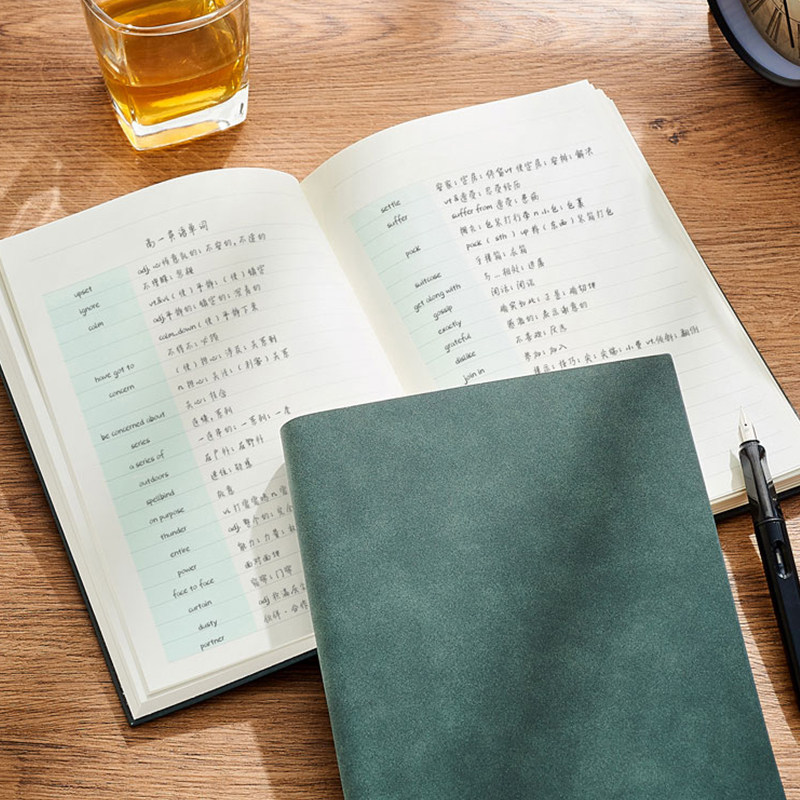 高一英语单词
upset adj.心烦意乱的；不安的，不适的
不理睬；忽视
ignore
calm vt&vi（使）平静；（使）镇定
adj.平静的；镇定的；沉着的
calm down（使）平静下来
have got to 不得不；必须
concern（使）担心；涉及；关系到
n.担心；关注；（利害）关系
be concerned about 关心；挂念
series 连续，系列
a series of 一连串的；一系列；一套
outdoors 在户外；在野外
spellbind 迷住；疑惑
on purpose 故意
thunder vi.打雷雷鸣 n.雷
entire adj.整个的；完全
power 能力；力量；
face to face 面对面地
curtain 窗帘；门帘
dusty adj.积满灰尘
partner 伙伴·合作
settle 安家；定居；停留vt.使定居；安排；解决
suffer vt&遭受；忍受经历
suffer from 遭受；患病
pack 捆扎；包装打行李 n.小包；包裹
pack（sth）up 将（东西）装箱打包
suitcase 手提箱；衣箱
get along with 与…相处；进展
gossip 闲话；闲谈
exactly 确实如此；正是；确切地
grateful 感激的；表示谢意的
dislike 不喜欢；厌恶
join in 参加；加入
技巧；尖；尖端；小费 vt.倾斜；翻倒